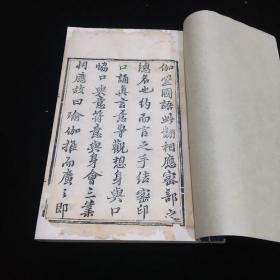 伽竺國語此翻相應密部之
總名也約而言之手結密印
口誦真言意專觀想身與口
恊口與意符意與身會三業
相應故曰瑜伽推而廣之即